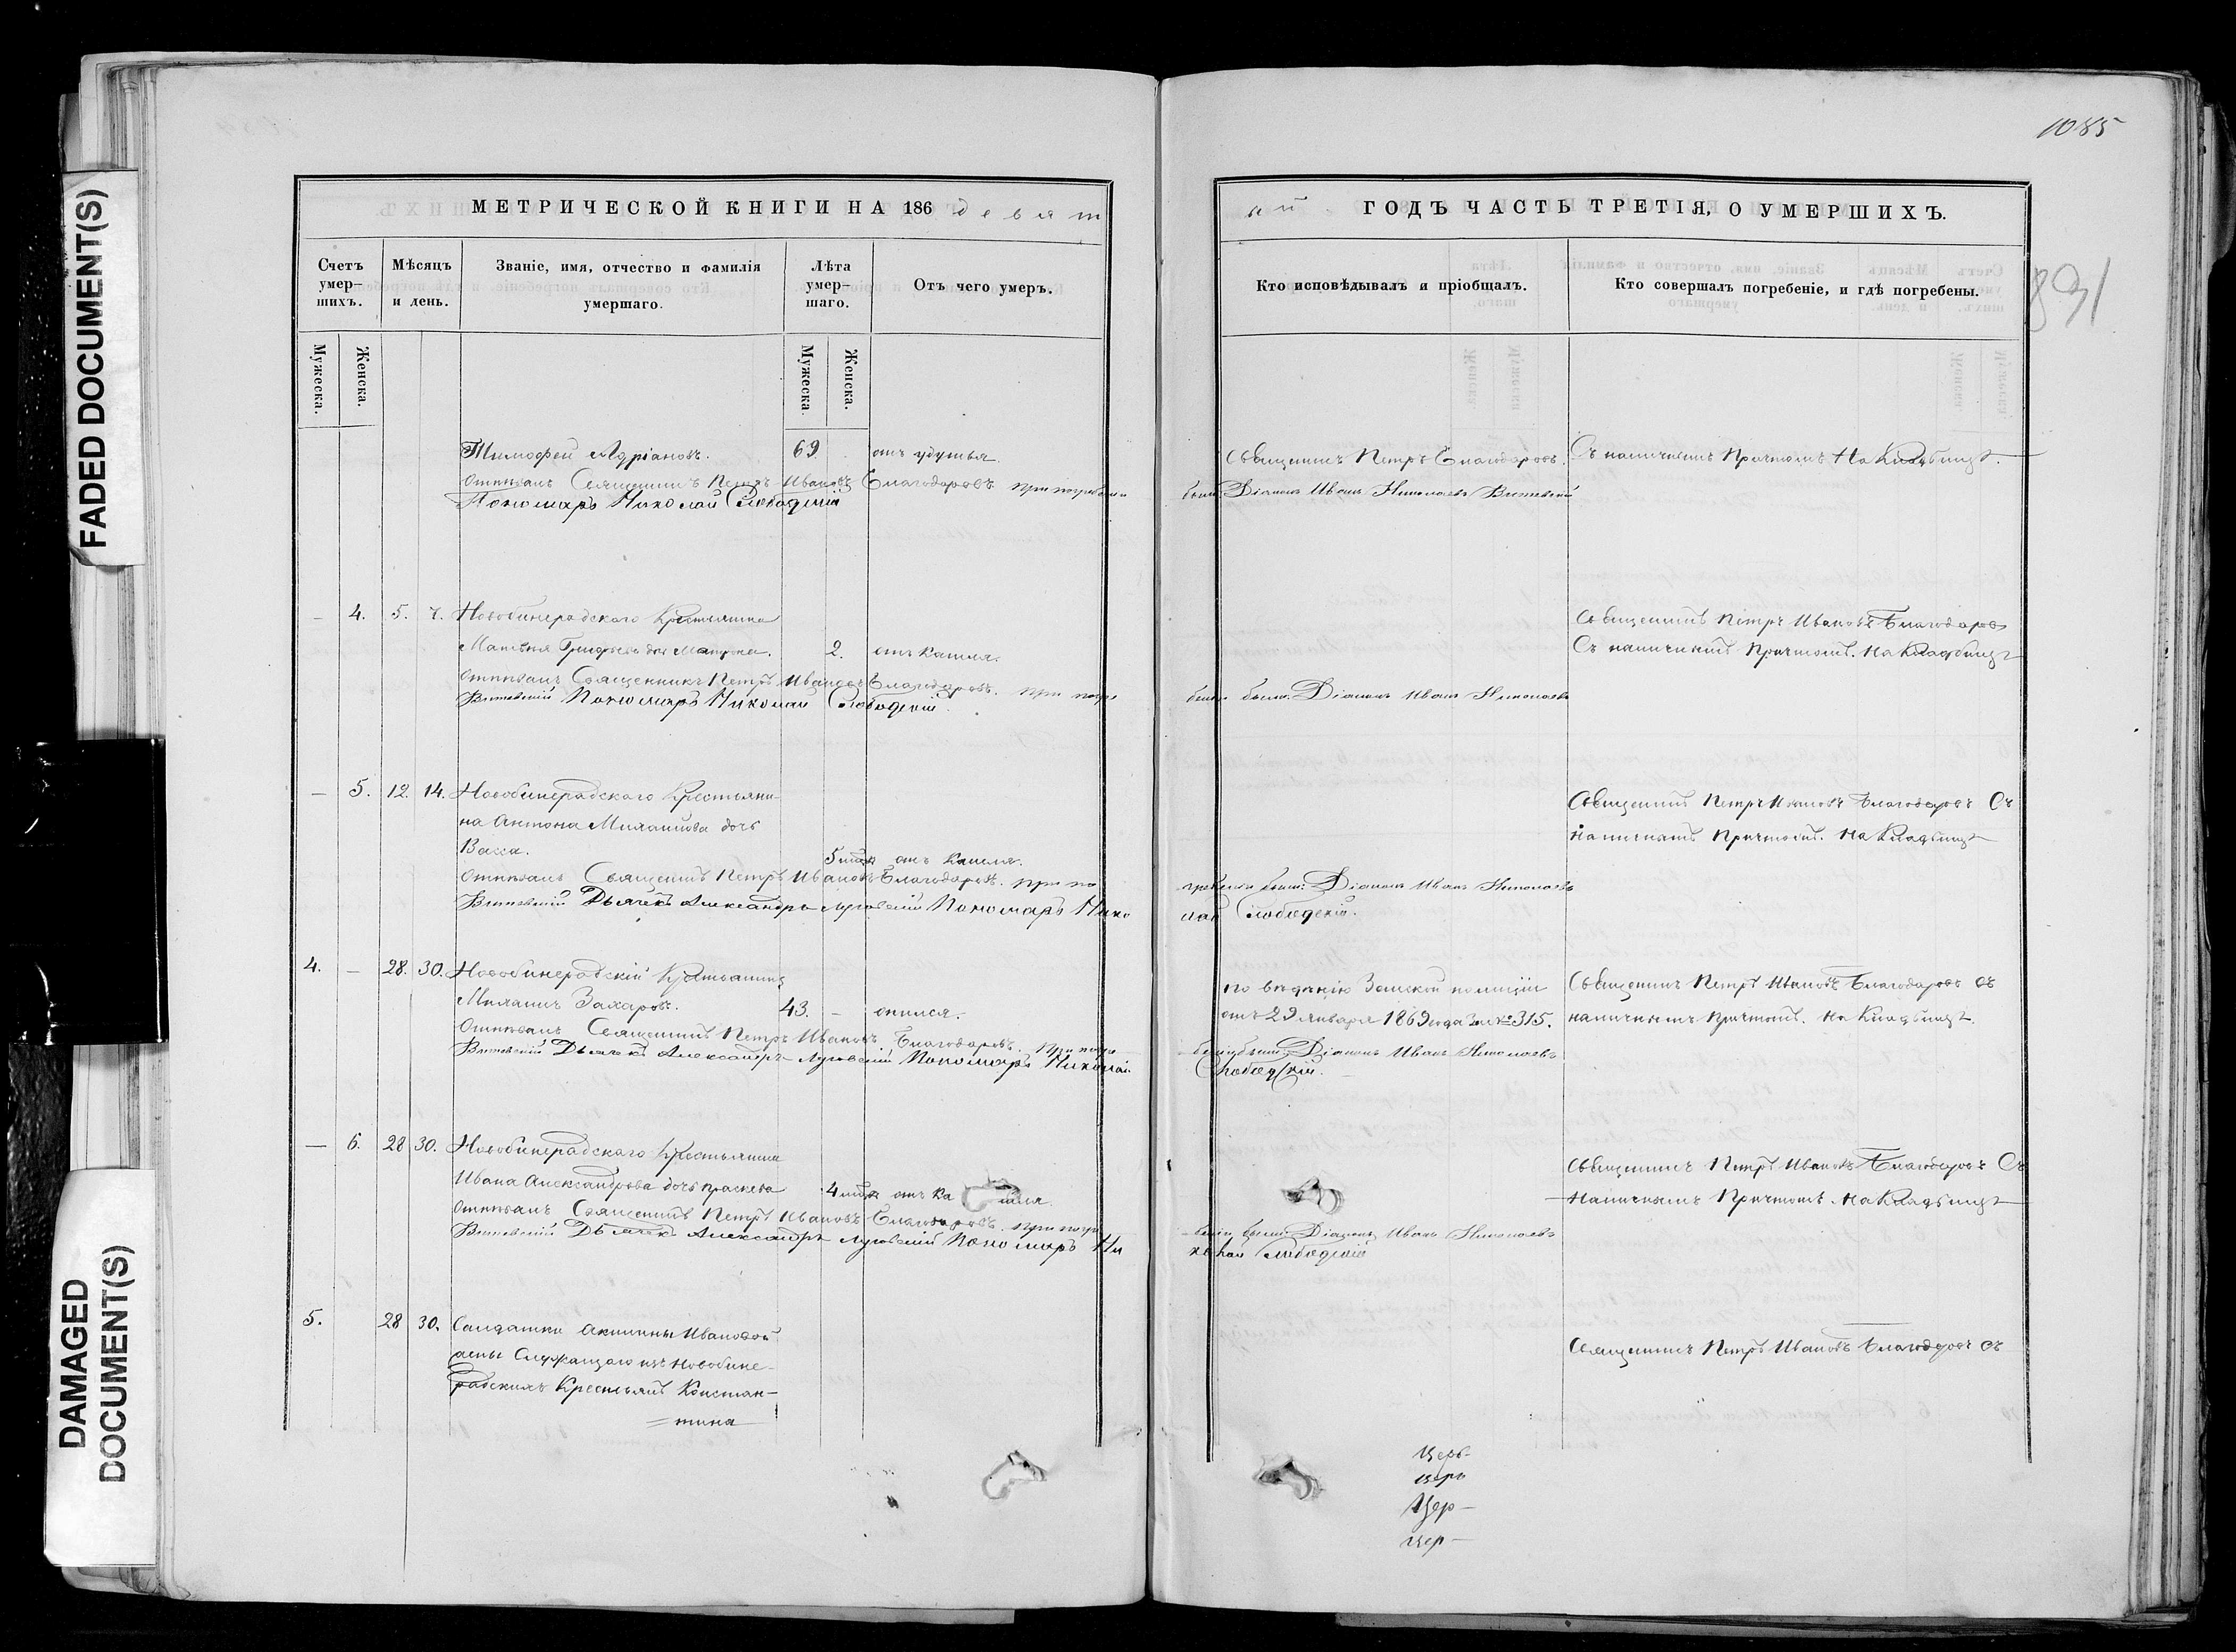 FADED DOCUMENT(S)
DAMAGED DOCUMENT(S)
МЕТРИЧЕСКОЙ КНИГИ НА 186 девят
Счетъ умер-шихъ.
Мѣсяцъ и день.
Званіе, имя, отчество и фамилія умершаго.
Лѣта умер-шаго.
Отъ чего умеръ.
Мужеска.
Женска.
Мужеска
Женска.
Тимофей Адріановъ. 69 отъ удушья.
Отпѣвалъ Священникъ Петръ Ивановъ Благодаровъ. при погребеніи
Пономарь Николай Слободскій
– 4. 5. 7. Новобинерадскаго Крестьянина
дочь Матрона. 2. отъ кашля.
Отпѣвалъ Священникъ Петръ Ивановъ Благодаровъ. при погре
Пономарь Николай Слободскій.
– 5. 12. 14. Новобинерадскаго Крестьяни-
на Антона Михайлова дочь
Васса. 5 отъ кашля.
Отпѣвалъ Священникъ Петръ Ивановъ Благодаровъ. при по
Дьячекъ Александръ Пономарь Нико
4. – 28. 30. Новобинерадскій Крестьянинъ
Михаилъ Захаровъ. 43. – опился.
Отпѣвалъ Священникъ Петръ Ивановъ Благодаровъ. При погре
Дьячекъ Александръ Пономарь Николай
– 6. 28 30. Новобинерадскаго Крестьянина
Ивана Александрова дочь Праскева 4 отъ ка шля.
Отпѣвалъ Священникъ Петръ Ивановъ Благодаровъ. при погре
Дьячекъ Александръ Пономарь Ни
5. 28 30. Солдатки Акилины Ивановой
жены Служащаго изъ Новобине-
радскихъ Крестьянъ Констан-
=тина
1085
831
ый ГОДЪ ЧАСТЬ ТРЕТІЯ, О УМЕРШИХЪ.
Кто исповѣдывалъ и пріобщалъ.
Кто совершалъ погребеніе, и гдѣ погребены.
Священникъ Петръ Благодаровъ. Съ наличнымъ Причтомъ На Кладбищѣ.
были Діаконъ Иванъ Николаевъ
Священникъ Петръ Ивановъ Благодаровъ
Съ наличнымъ Причтомъ. На Кладбищѣ
были: Діаконъ Иванъ Николаевъ
Священникъ Петръ Ивановъ Благодаровъ Съ
Наличнымъ Причтомъ. На Кладбищѣ
гребеніи были: Діаконъ Иванъ Николаевъ
лай Слободскій.
по вѣдѣнію Земской полиціи
отъ 29 Января 1869 года За № 315.
Священникъ Петръ Ивановъ Благодаровъ съ
наличнымъ Причтомъ. На Кладбищѣ.
беніи были: Діаконъ Иванъ Николаевъ
Слободскій.
Священникъ Петръ Ивановъ Благодаровъ Съ
Наличнымъ Причтомъ. На Кладбищѣ
беніи были Діаконъ Иванъ Николаевъ
колай Слободскій
Священникъ Петръ Ивановъ Благодаровъ съ
Церъ-
церъ
Цер-
цер-